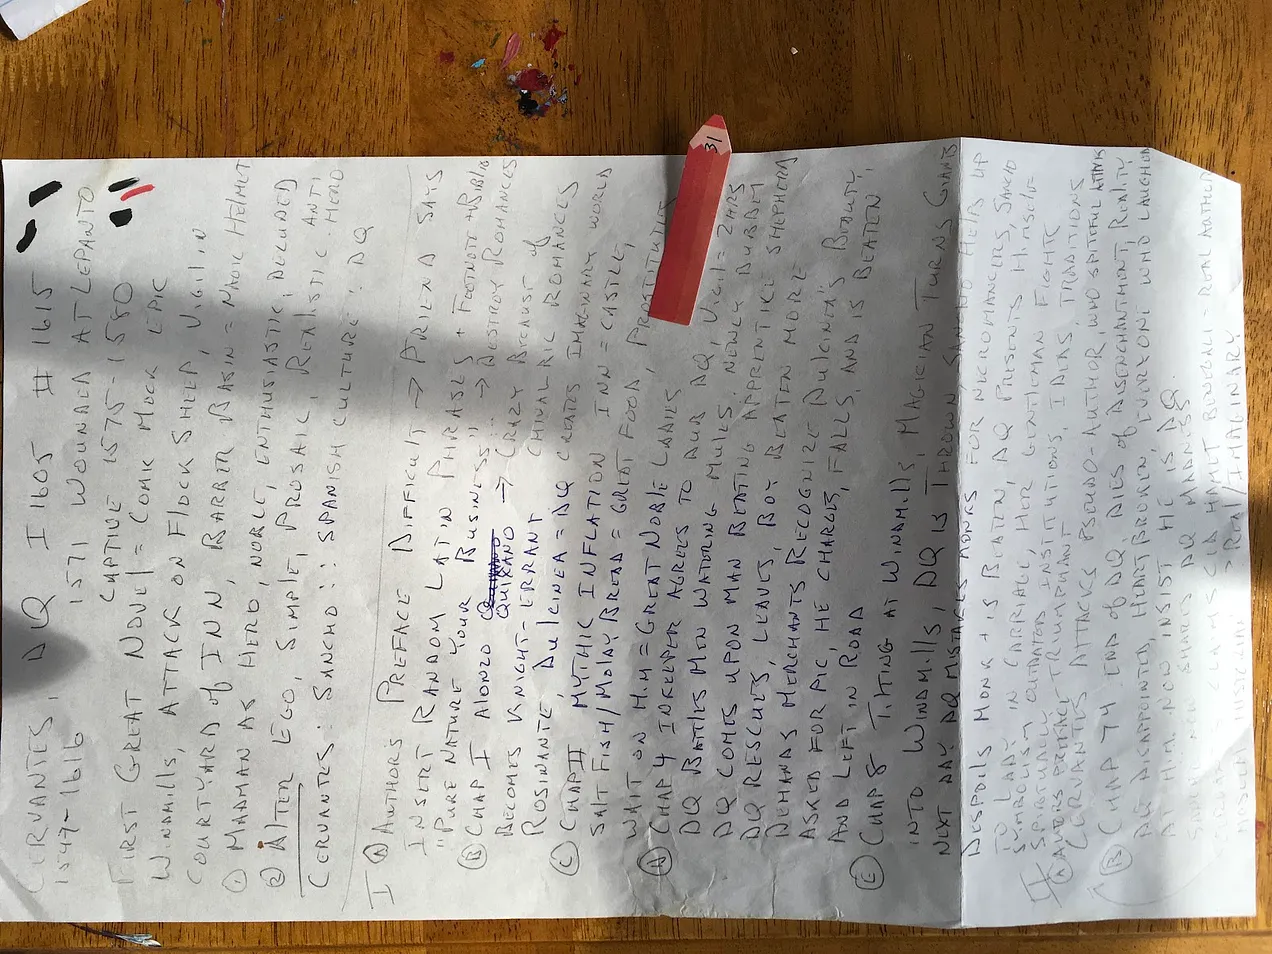 CERVANTES, DQ I 1605 # 1615
1547-1616 1571 WOUNDED AT LEPANTO
CAPTIVE 1575-1580
FIRST GREAT NOVEL = COMIC MOCK EPIC
WINDMILLS, ATTACK ON FLOCK SHEEP, VIGIL IN
COURTYARD OF INN, BARBER BASIN = MAGIC HELMET
① MADMAN AS HERO, NOBLE, ENTHUSIASTIC, DELUDED
② ALTER EGO, SIMPLE, PROSAIC, REALISTIC ANTI HERO
CERVANTES: SANCHO :: SPANISH CULTURE: DQ
I Ⓐ AUTHORS PREFACE DIFFICULT → FRIEND SAYS
INSERT RANDOM LATIN PHRASES + FOOTNOT + BIBLIO
"PURE NATURE YOUR BUSINESS" → DESTROY ROMANCES
Ⓑ CHAP I ALONZO QUIXANO → CRAZY BECAUSE OF
BECOMES KNIGHT-ERRANT CHIVALRIC ROMANCES
ROSINANTE, DULCINEA = DQ CREATES IMAGINARY WORLD
Ⓒ CHAP II MYTHIC INFLATION INN = CASTLE,
SALT FISH/MOLDY BREAD = GREAT FOOD, PROSTITUTES
WAIT ON HIM = GREAT NOBLE LADIES
Ⓐ CHAP 4 INKEEPER AGREES TO DUB DQ, VIGIL =
DQ BATTLES MEN WATERING MULES. NEWLY DUBBED
DQ COMES UPON MAN BEATING APPRENTICE SHEPHERD
DQ RESCUES, LEAVES, BOY BEATEN MORE
DEMANDS MERCHANTS RECOGNIZE DULCINEA'S BEAUTY,
ASKED FOR PIC, HE CHARGES, FALLS, AND IS BEATEN,
AND LEFT IN ROAD
Ⓔ CHAP 8 TILTING AT WINDMILLS, MAGICIAN TURNS GIANTS
INTO WINDMILLS DQ IS THROWN SANCHO HELPS UP
NEXT DAY DQ MISTAKES MONKS FOR NECROMANCERS, SANCHO
DESPOILS MONK + IS BEATEN, DQ PRESENTS HIMSELF
TO LADY IN CARRIAGE, HER GENTLEMAN FIGHTS
SYMBOLISM OUTDATED INSTITUTIONS, IDEAS, TRADITIONS
SPIRITUALLY TRIUMPHANT
II Ⓐ PREFACE ATTACKS PSEUDO-AUTHOR WHO SPITEFUL ATTACK
CERVANTES
Ⓑ CHAP 74 END OF DQ, DIES OF DISENCHANTMENT, REALITY
DQ DISAPPOINTED, HEARTBROKEN EVERYONE WHO LAUGHED
AT HIM NOW INSIST HE IS DQ
SANCHO NOW SHARES DQ MADNESS
CLAIMS CID HAMET BENENGELI = REAL AUTHOR
REAL/IMAGINARY
31